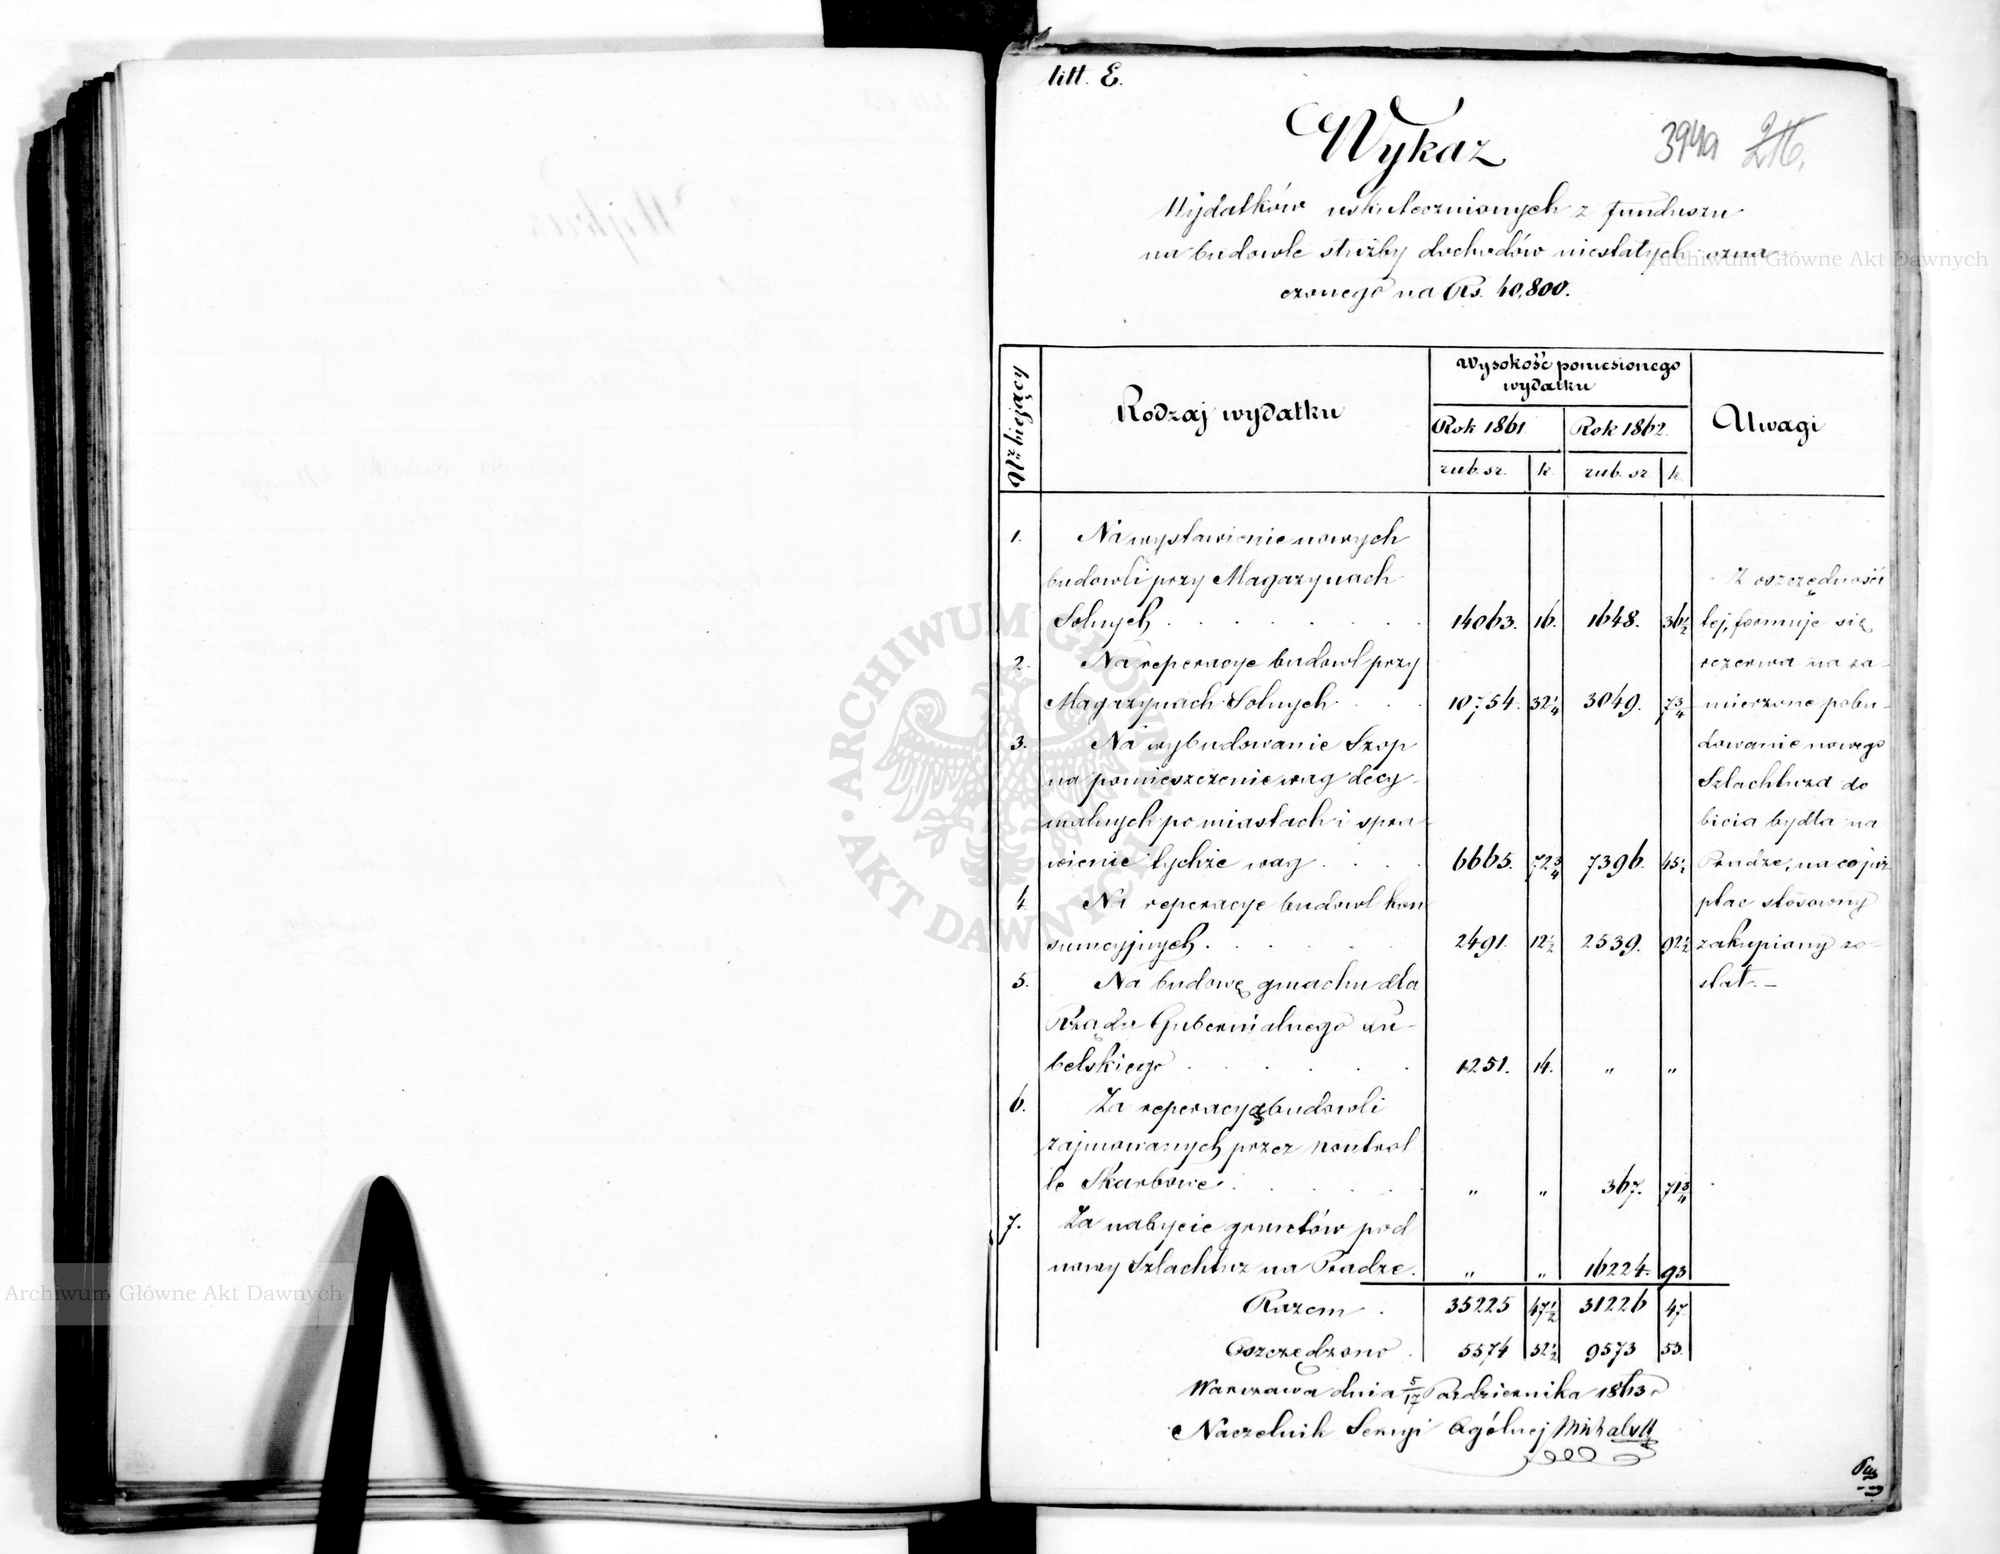 litt. E.
394a 216.
Wykaz
Wydatków uskutecznionych z funduszu
na budowle służby dochodów niestałych ozna-
czonego na Rs. 40,800.
Nr bieżący
Rodzaj wydatku
Wysokość poniesionego
wydatku
Uwagi
Rok 1861 Rok 1862.
rub. sr. k. rub. sr k.
1. Na wystawienie nowych
budowli przy Magazynach
Solnych . . . . . . . 14063. 16. 1648. 36½
2. Na reperacye budowl przy
Magazynach Solnych . . . 10754. 32¼ 3049. 7¾
3. Na wybudowanie Szop
na pomieszczenie wag decy-
malnych po miastach i spra-
wienie tychże wag . . . . 6665. 72¾ 7396. 45½
4. Na reperacye budowl kon
sumcyjnych. . . . . . 2491. 12½ 2539. 92½
5. Na budowę gmachu dla
Rządu Gubernialnego Lu-
belskiego . . . . . . 1251. 14. " "
6. Za reperacyą budowli
zajmowanych przez Kontrol
le Skarbowe . . . . . " " 367. 71¾
7. Za nabycie gruntów pod
nowy Szlachtuz na Pradze. " " 16224. 93
Razem . 35225 47½ 31226 47.
Oszczędzono . 5574 52½ 9573 53.
Z oszczędności
tej, formuje się
rezerwa na za-
mierzone pobu-
dowanie nowego
Szlachtuza do
bicia bydła na
Pradze, na co już
plac stosowny
zakupiony zo-
stał. –
Warszawa dnia 5/17 Października 1863 r
Naczelnik Sekcyi Ogólnej
Archiwum Główne Akt Dawnych
Archiwum Główne Akt Dawnych
ARCHIWUM GŁÓWNE · AKT DAWNYCH ·